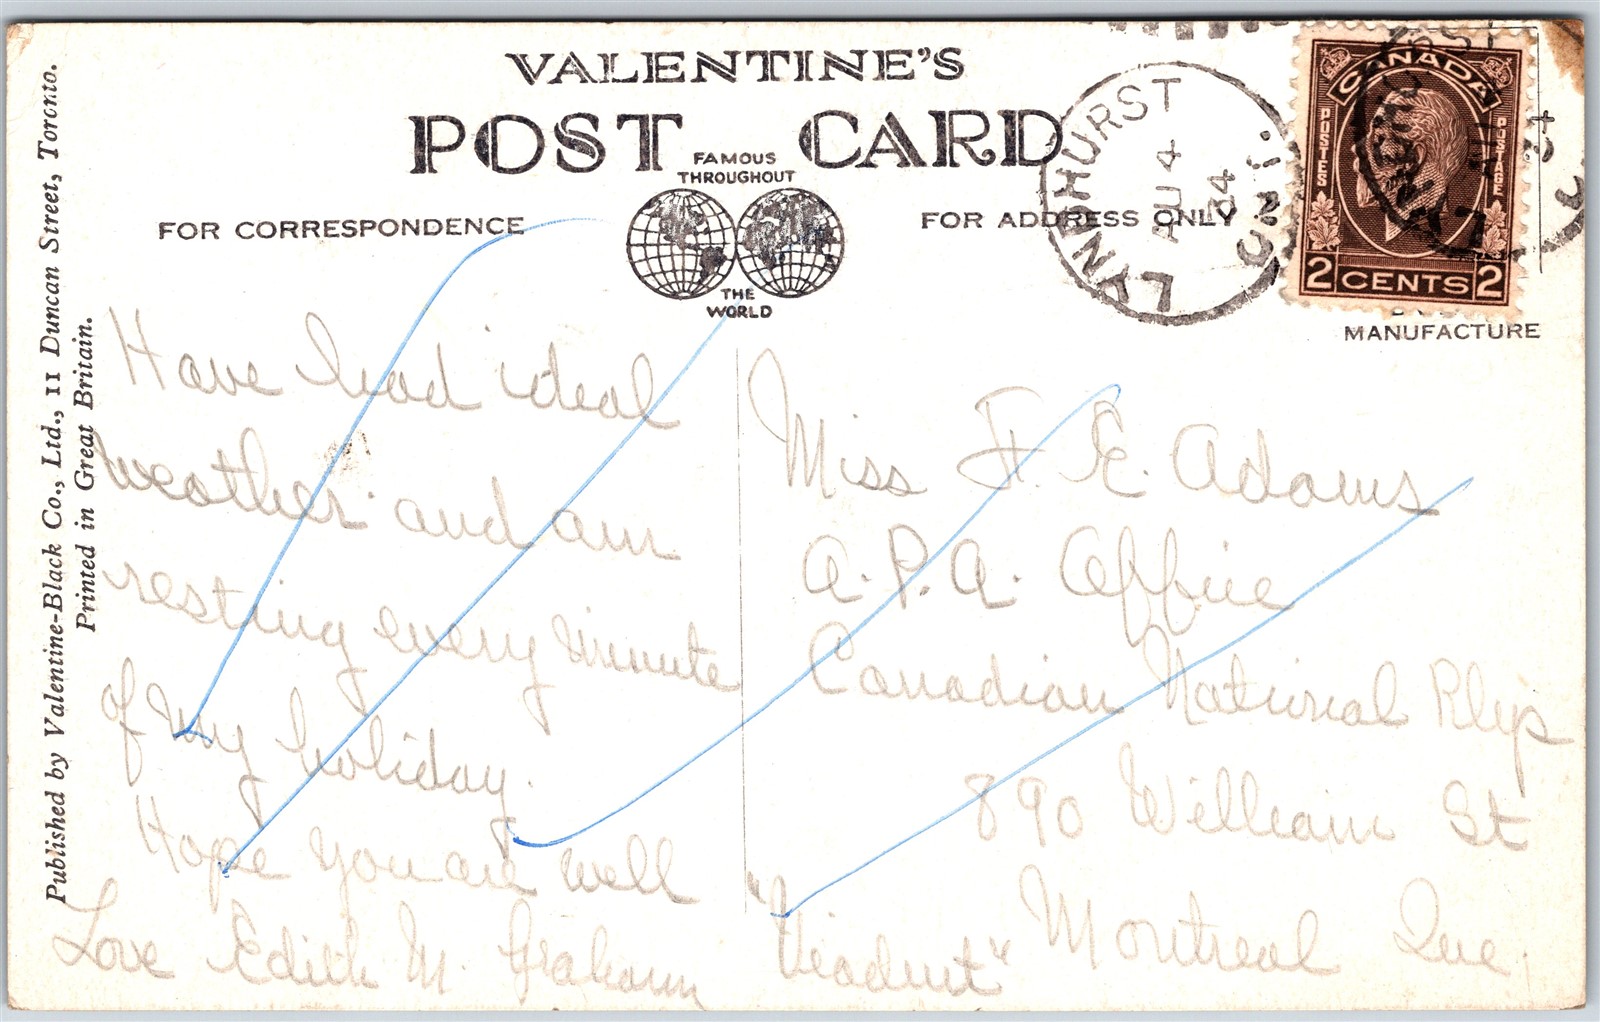 VALENTINE'S
POST CARD
FAMOUS
THROUGHOUT
THE
WORLD
FOR CORRESPONDENCE
FOR ADDRESS ONLY
MANUFACTURE
LYNDHURST
AU 4
34
ONT.
CANADA
POSTES
POSTAGE
2 CENTS 2
Published by Valentine-Black Co., Ltd., 11 Duncan Street, Toronto.
Printed in Great Britain.
Have had ideal
weather and am
resting every minute
of my holiday.
Hope you are well
Love Edith M. Graham
Miss F. E. Adams
A. P. A. Office
Canadian National Rlys
890 William St
"Viaduct" Montreal Que.